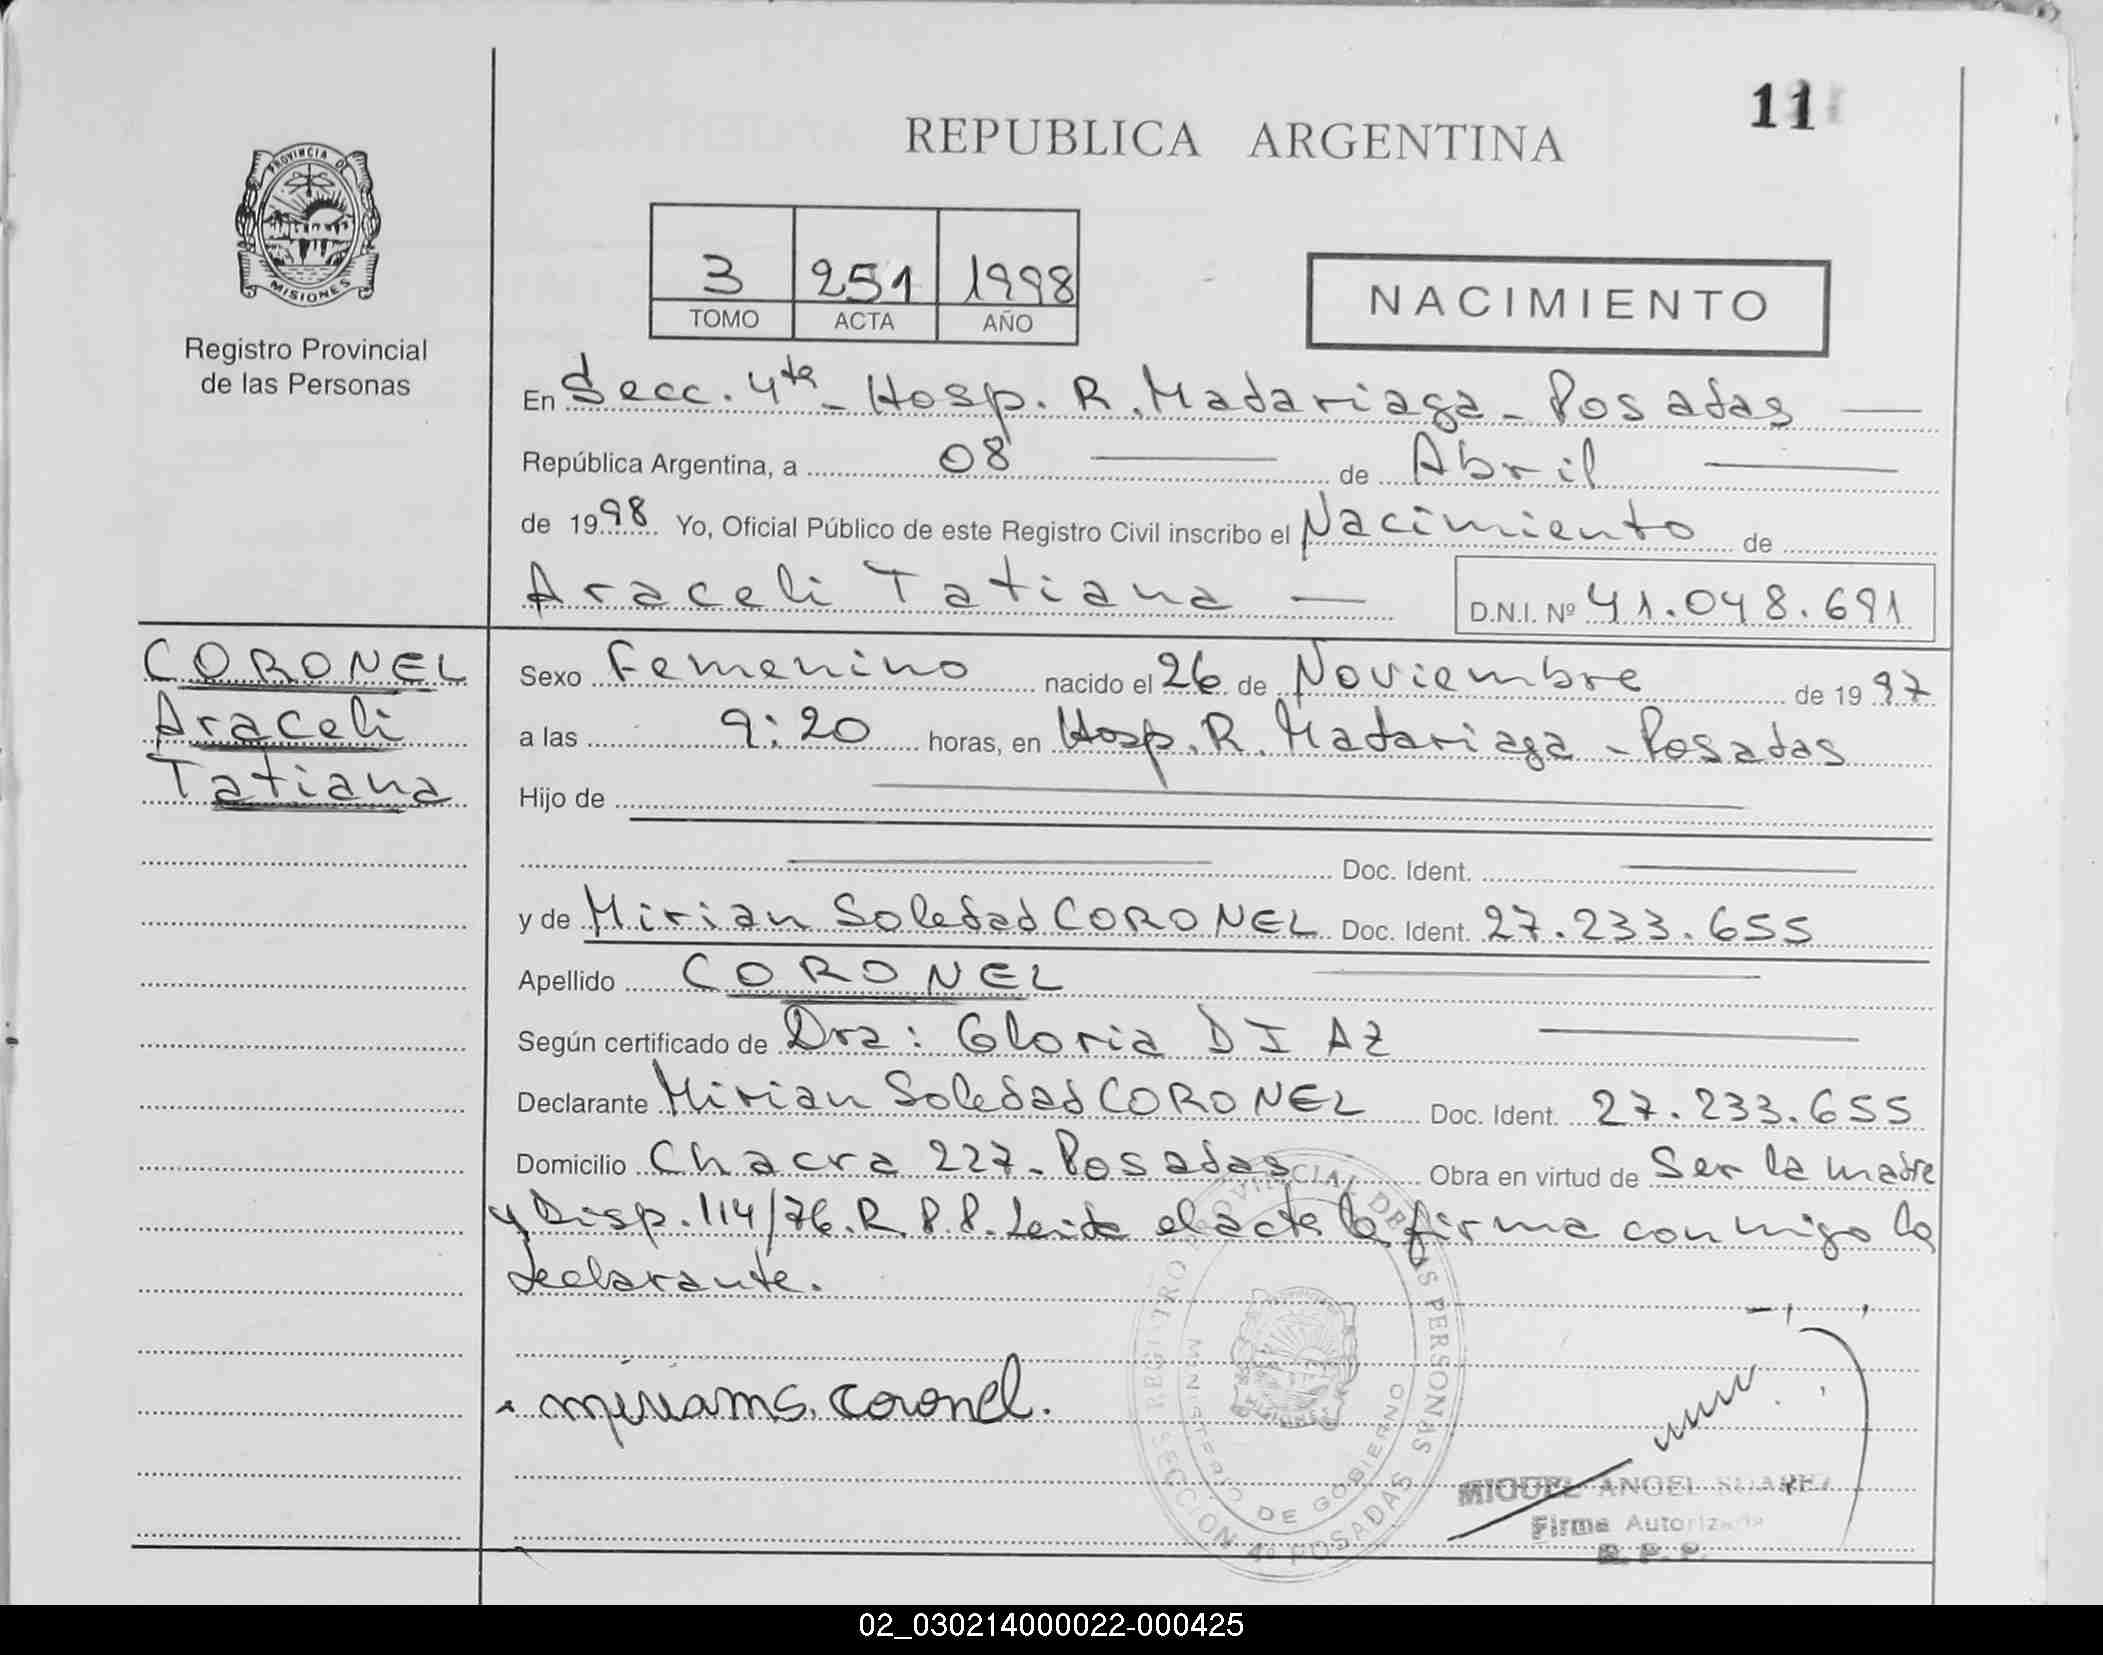 11
REPUBLICA ARGENTINA
PROVINCIA DE
MISIONES
Registro Provincial
de las Personas
3 251 1998
TOMO ACTA AÑO
NACIMIENTO
En Secc. 4ta - Hosp. R. Madariaga - Posadas
República Argentina, a 08 de Abril
de 1998 Yo, Oficial Público de este Registro Civil inscribo el Nacimiento de
Araceli Tatiana D.N.I. Nº 41.048.691
CORONEL
Araceli
Tatiana
Sexo Femenino nacido el 26 de Noviembre de 1997
a las 9:20 horas, en Hosp. R. Madariaga - Posadas
Hijo de
Doc. Ident.
y de Mirian Soledad CORONEL Doc. Ident. 27.233.655
Apellido CORONEL
Según certificado de Dra: Gloria DIAZ
Declarante Mirian Soledad CORONEL Doc. Ident. 27.233.655
Domicilio Chacra 227 - Posadas Obra en virtud de Ser la madre
y Disp. 114/76. R.P.P. Leida el acta la firma conmigo la
declarante.
miriam s. coronel.
REGISTRO PROVINCIAL DE LAS PERSONAS
MINISTERIO DE GOBIERNO
SECCION 4º POSADAS
MIGUEL ANGEL SUAREZ
Firma Autorizada
R. P. P.
02_030214000022-000425